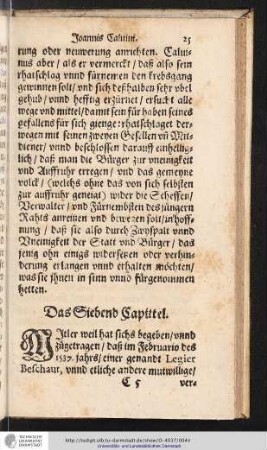 Joannis Caluini. 25
rung oder neuwerung anrichten. Calui-
nus aber / als er vermerckt / daß also sein
rhatschlag vnnd fürnemen den krebsgang
gewinnen solt / vnd sich deßhalben sehr vbel
gehub / vnnd hefftig erzürnet / ersucht alle
wege vnd mittel / damit sein für haben seines
gefallens für sich gienge: rhatschlaget der-
wegen mit seinen zweyen Gesellen vnd Mit-
diener / vnnd beschlossen darauff einhellig-
lich / daß man die Bürger zur vneinigkeit
vnd Auffruhr erregen / vnd das gemeyne
volck / (welchs ohne das von sich selbsten
zur auffruhr geneigt) wider die Scheffen /
Verwalter / vnd Fürnembsten des jüngern
Rahts anreitzen vnd bewegen solt / in hoff-
nung / daß sie also durch Zwyspalt vnnd
Vneinigkeit der Statt vnd Bürger / das
jenig ohn einigs widersetzen oder verhin-
derung erlangen vnnd erhalten möchten /
was sie jhnen in sinn vnnd fürgenommen
hetten.
Das Siebend Capittel.
Mitler weil hat sichs begeben / vnnd
zugetragen / daß im Februario des
1537. jahrs / einer genandt Legier
Beschaut, vnnd etliche andere mutwillige /
C 5 ver-
TECHNISCHE
UNIVERSITÄT
DARMSTADT